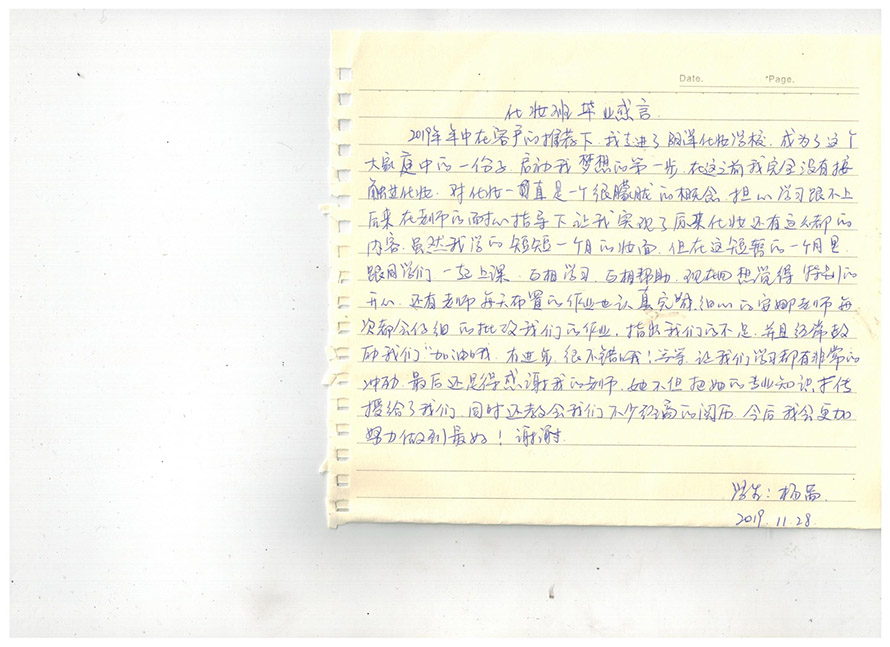 Date.    Page.
化妆班毕业感言.
2019年年中在客户的推荐下.我走进了阳洋化妆学校.成为了这个
大家庭中的一份子.启动我梦想的第一步.在这之前我完全没有接
触过化妆.对化妆一直是一个很朦胧的概念.担心学习跟不上
后来在老师的耐心指导下让我实现了原来化妆还有这么都的
内容.虽然我学的短短一个月的妆面.但在这短暂的一个月里.
跟同学们一起上课.互相学习.互相帮助.现在回想觉得特别的
开心.还有老师每天布置的作业也认真完成.细心的安娜老师每
次都会仔细的批改我们的作业.指出我们的不足.并且经常鼓
励我们"加油哦.有进步.很不错哦!等等.让我们学习都有非常的
冲劲.最后还是得感谢我的老师.她不但把她的专业知识
授给了我们.同时还教会我们不少的阅历.今后我会更加
努力做到最好!谢谢.
学生:杨
2019.11.28